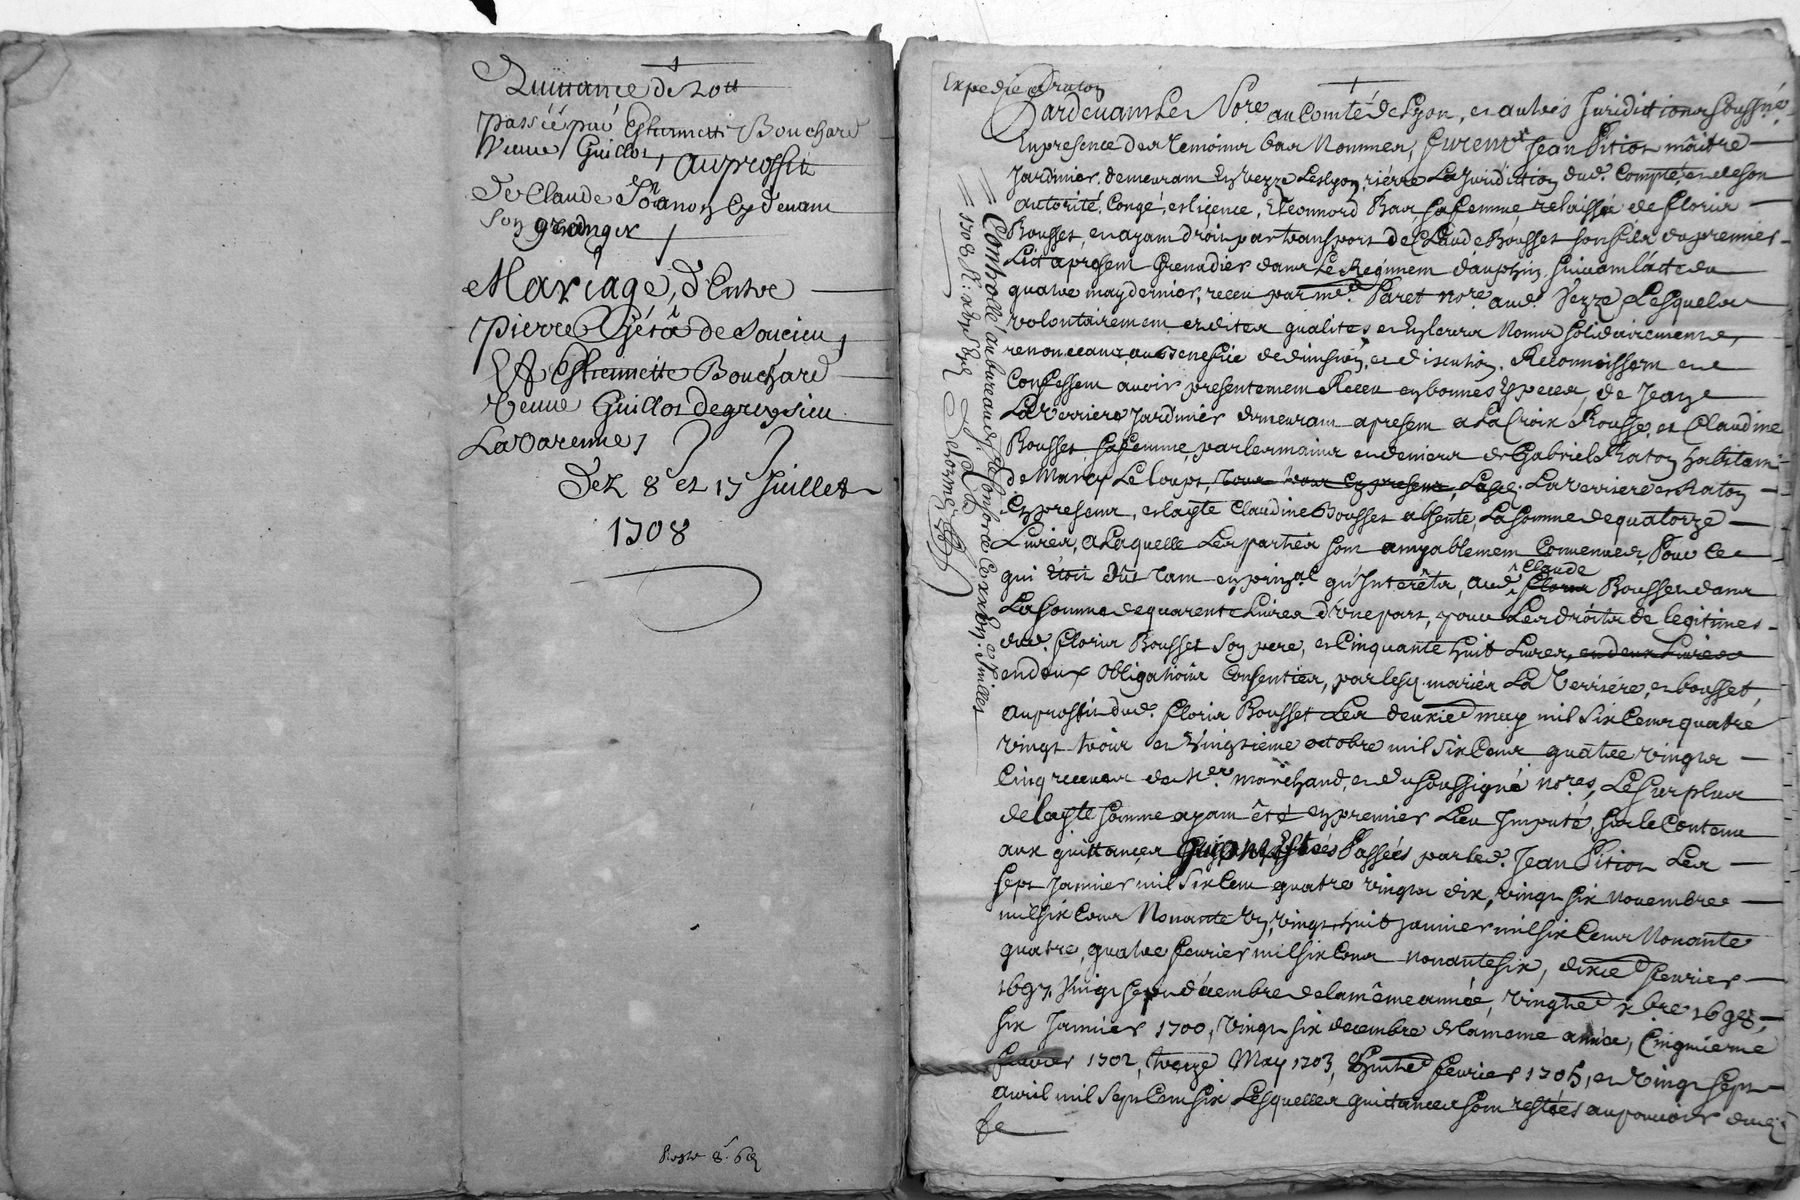 Quittance de Lott
Passée par Estiennette Bouchard
Veuve Guillot, au proffit
De Claude Jeanon cy devant
son granger
Mariage, d'Entre
Pierre Géra de Soucieu,
Et Estiennette Bouchard
Veuve Guillot de grezieu
La Varenne,
Dez 8 et 17 Juillet
1708
Expedié a Raton
Pardevant Le Nore. au Comté de Lyon, et autres Juridictions soussné.
En presence des Temoins bas Nommez, furent Jean Pitiot maître
Jardinier, demeurant En Vezze Les Lyon, riérre La Juridiction dud. Compté, et de son
autorité, Congé, et licence, Eleonnord Bar sa femme, relaissée de Floris
Bousset, et ayant droit par transport de Claude Bousset son fils du premier
Lict a present Grenadier dans Le Regiment dauphin, suivant lacte du
quatre may dernier, receu par me. Paret nore. aud. Vezze, Lesquels
volontairement et dites qualites et En Leurs Noms solidairement,
renonceant au benefice de division, et discution, Reconnoissent et
Confessent avoir presentement Receu en bonnes Especes, de Jean
La Verriere Jardinier demeurant a present a La Croix Rousse, et Claudine
Bousset, sa femme, par les mains et deniers de Gabriel Raton habitant
de Marcy Le Loups, tous trois cy presents, Lesd. La Verriere et Raton
Cy presents, et lad. Claudine Bousset absente, La somme de quatorze
Livres, a Laquelle Les parties sont amyablement Convenues, Pour ce
qui étoit dû tant en prinal. qu'Interêts, aud. Claude Floris Bousset dans
La somme de quarente Livres d'Une part, pour Les droits de legitimes
dud. Floris Bousset son pere, et Cinquante huit Livres, en deux Livres
en deux Obligations Consenties, par lesd. mariés La Verriére, et bousset
au proffit dud. Floris Bousset Les deuxie. may mil six Cens quatre
vingt trois et Vingtieme octobre mil six Cens quatre vingts
Cinq receues de Me. marchand, et du soussigné nores. Le surplus
de lad. somme ayant êté en premier Lieu Imputé, sur le Contenu
aux quittances Passées par led. Jean Pitiot Les
sept Janvier mil six Cent quatre vingts dix, vingt six novembre
mil six Cens Nonante Un, vingt huit janvier mil six Cens Nonante
quatre, quatre fevrier mil six Cens nonante six, dixie. fevrier
1697, Vingt sept décembre de la même année, vingt 1698,
six Janvier 1700, Vingt six decembre de la meme année, Cinquieme
fevrier 1702, treize May 1703, Huite. fevrier 1705, et Vingt sept
avril mil sept Cent six, Lesquelles quittances sont restées au pouvoir dud.
Controllé au bureau de
1708